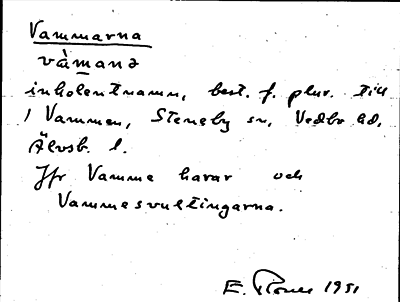 Vammarna
våmanə
inholentnamn, best. f. plur. till
1 Vammen, Steneby sn, Vedbo hd,
Älvsb. l.
Jfr Vamme harar och
Vammesvultingarna.
E. 1951